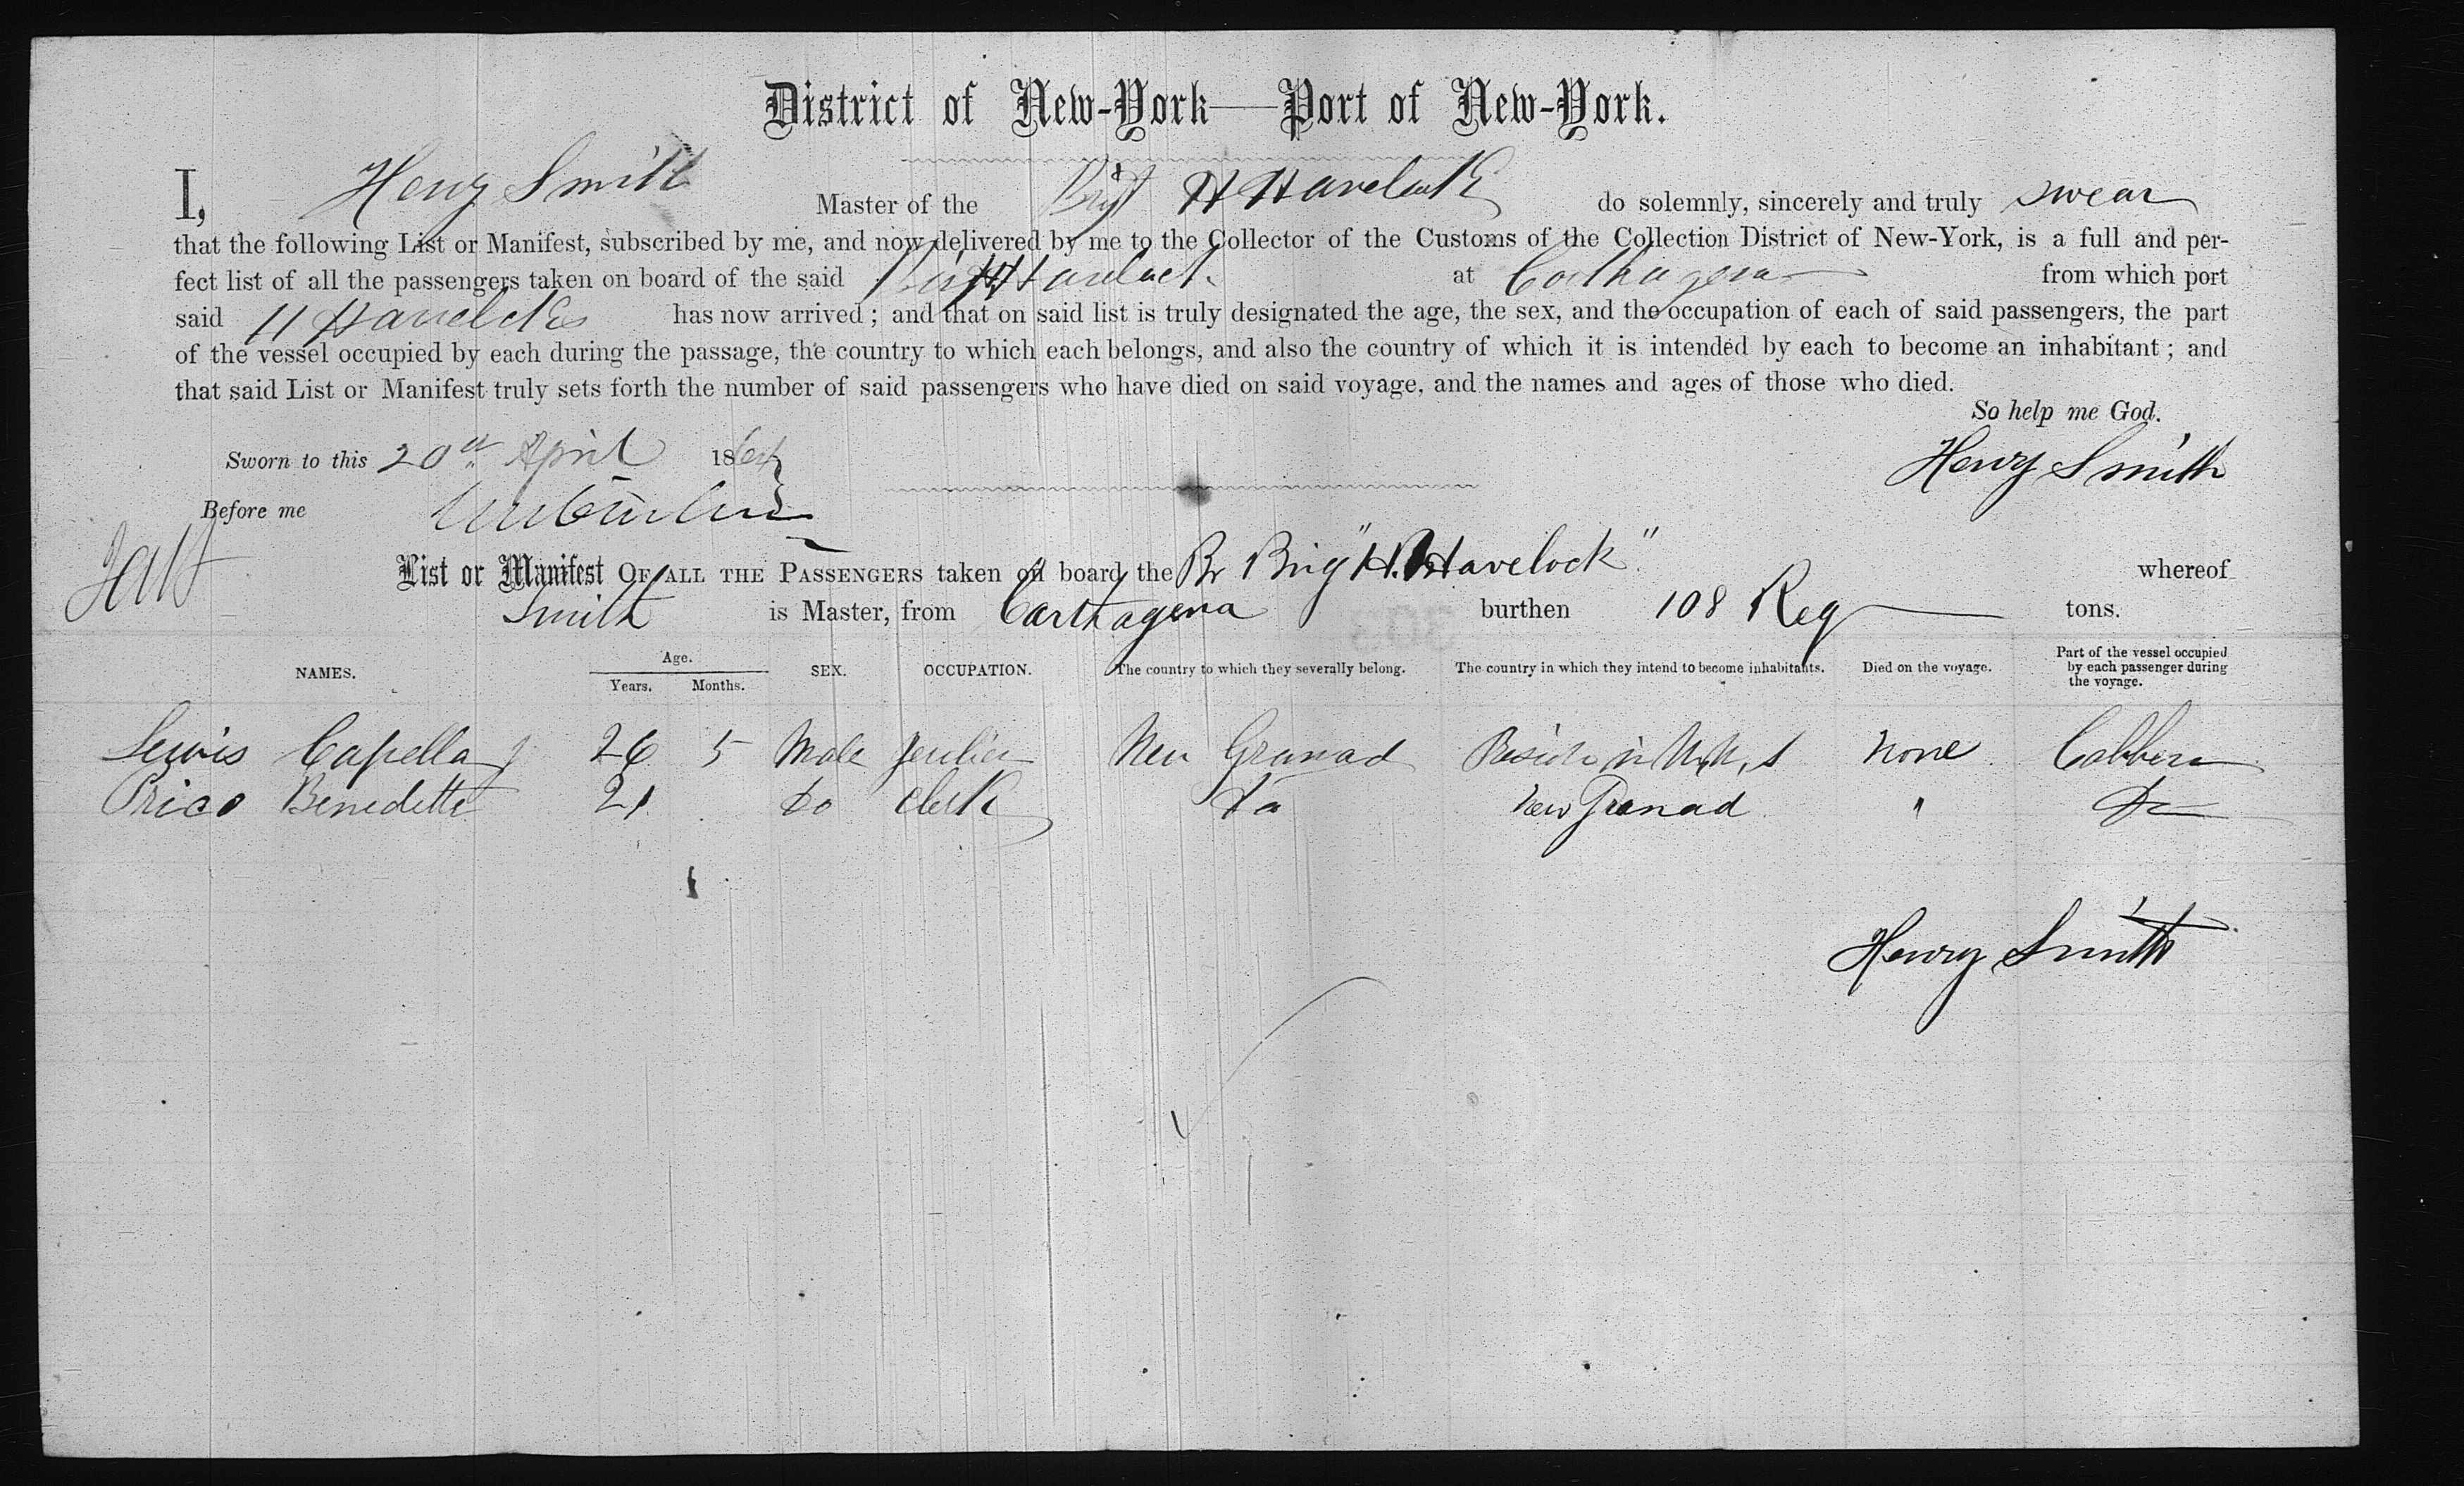 District of New-York—Port of New-York.
I, Henry Smith Master of the Brig H Havelock do solemnly, sincerely and truly swear
that the following List or Manifest, subscribed by me, and now delivered by me to the Collector of the Customs of the Collection District of New-York, is a full and per-
fect list of all the passengers taken on board of the said Brig H Havelock at Carthagena from which port
said H Havelock has now arrived; and that on said list is truly designated the age, the sex, and the occupation of each of said passengers, the part
of the vessel occupied by each during the passage, the country to which each belongs, and also the country of which it is intended by each to become an inhabitant; and
that said List or Manifest truly sets forth the number of said passengers who have died on said voyage, and the names and ages of those who died.
So help me God.
Sworn to this 20th April 1864
Henry Smith
Before me
List or Manifest OF ALL THE PASSENGERS taken on board the Br Brig "H. Havelock" whereof
Smith is Master, from Carthagena burthen 108 Reg tons.
NAMES. Age. Years. Months. SEX. OCCUPATION. The country to which they severally belong. The country in which they intend to become inhabitants. Died on the voyage. Part of the vessel occupied by each passenger during the voyage.
Lewis Capella 26 5 Male New Granad none
Prico Benedette 21 Do Clerk Do New Granad " Do
Henry Smith